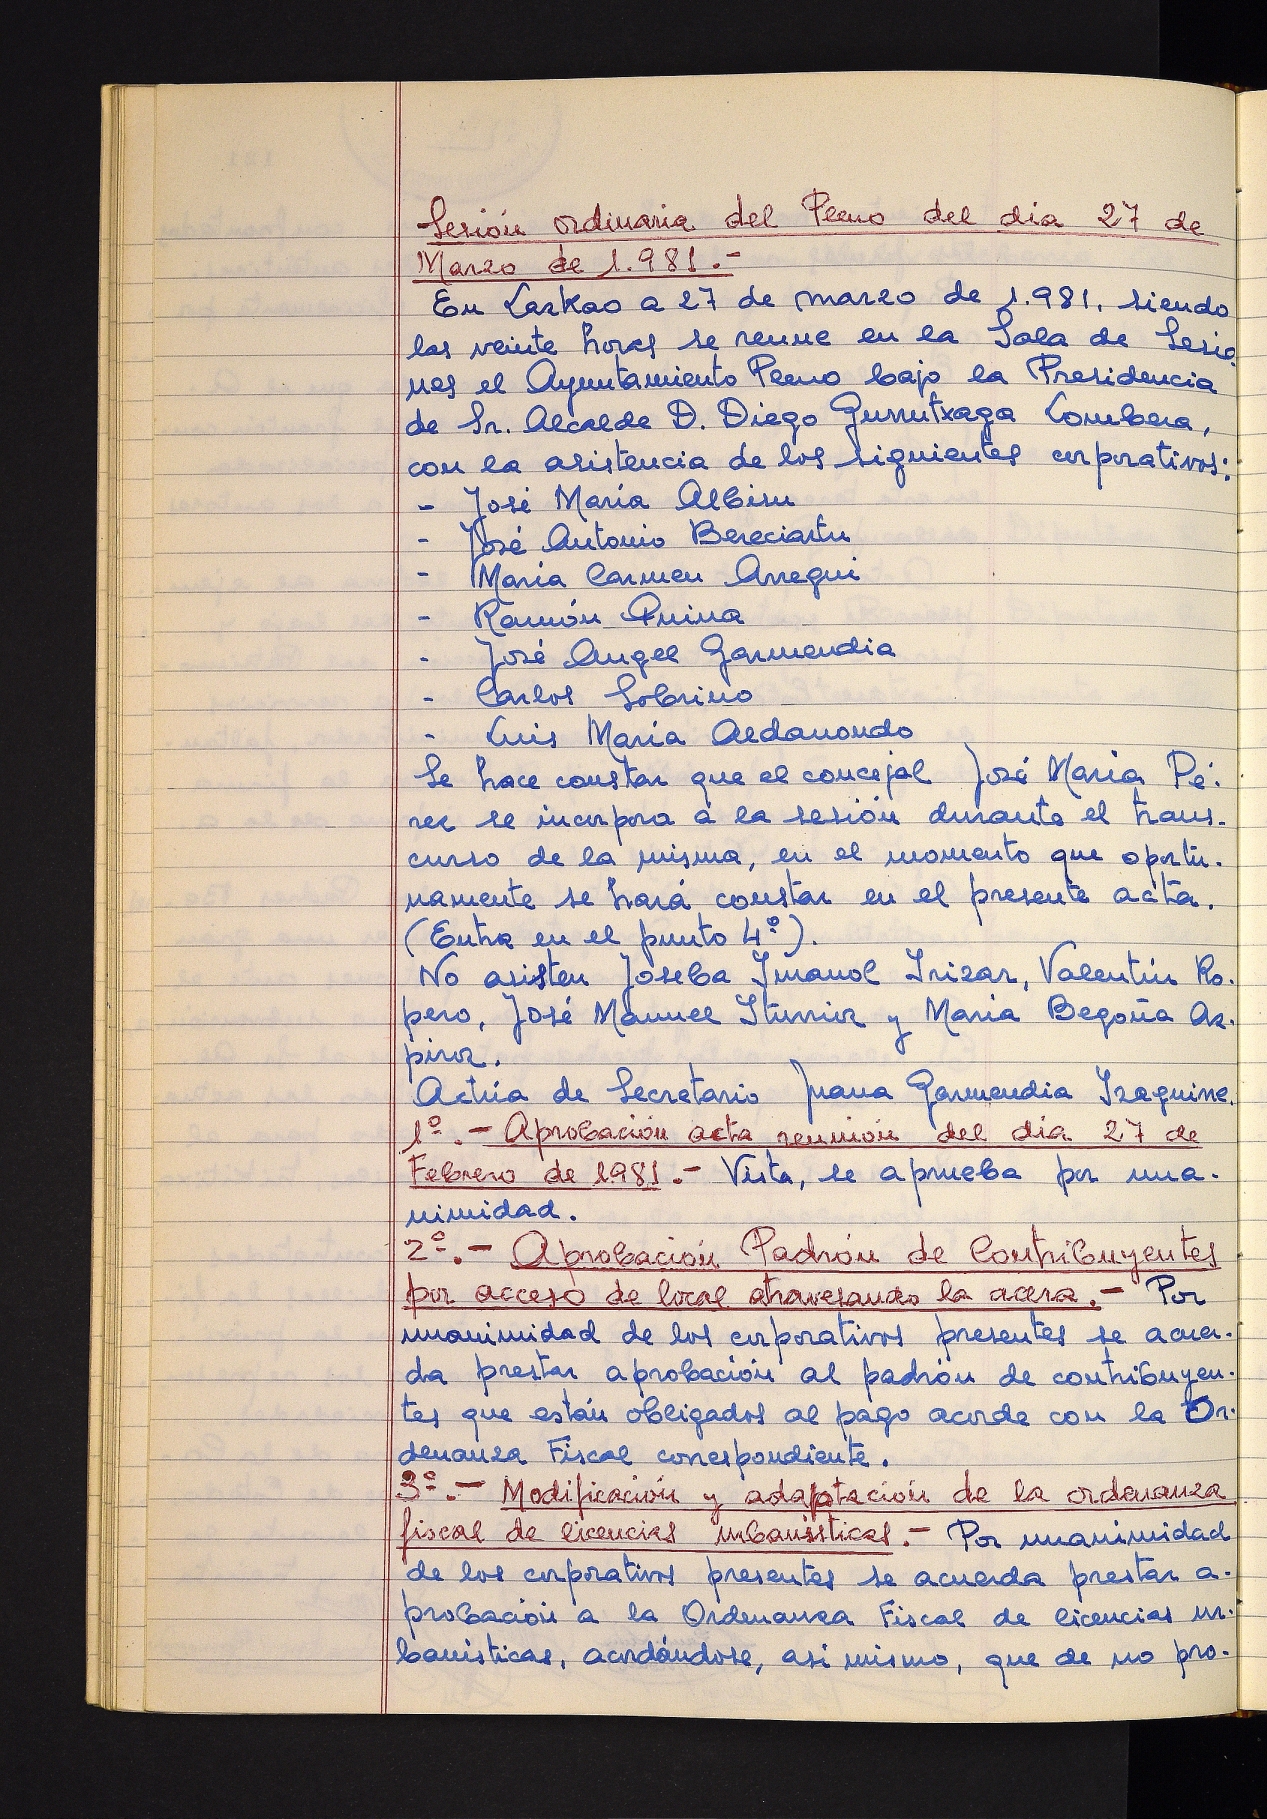 Sesión ordinaria del Pleno del dia 27 de
Marzo de 1.981.-
En Lazkao a 27 de marzo de 1.981, siendo
las veinte horas se reune en la Sala de Sesio
nes el Ayuntamiento Pleno bajo la Presidencia
de Sr. Alcalde D. Diego Gurrutxaga Lombera,
con la asistencia de los siguientes corporativos:
- José María Albisu
- José Antonio Bereciartu
- María Carmen Arregui
- Ramón Quina
- José Angel Garmendia
- Carlos Sobrino
- Luis María Aldanondo
Se hace constar que el concejal José María Pé-
rez se incorpora a la sesión durante el trans-
curso de la misma, en el momento que oportu-
namente se hará constar en el presente acta.
(Entra en el punto 4º).
No asisten Joseba Imanol Irizar, Valentín Ro-
pero, José Manuel Iturrioz y Maria Begoña Az-
piroz.
Actúa de Secretario Juana Garmendia Izaguirre.
1º.- Aprobación acta reunión del dia 27 de
Febrero de 1981.- Vista, se aprueba por una-
nimidad.
2º.- Aprobación Padrón de Contribuyentes
por acceso de local atravesando la acera.- Por
unanimidad de los corporativos presentes se acuer-
da prestar aprobación al padrón de contribuyen-
tes que están obligados al pago acorde con la Or-
denanza Fiscal correspondiente.
3º.- Modificación y adaptación de la ordenanza
fiscal de licencias urbanísticas.- Por unanimidad
de los corporativos presentes se acuerda prestar a-
probación a la Ordenanza Fiscal de licencias ur-
banísticas, acordándose, asi mismo, que de no pro-